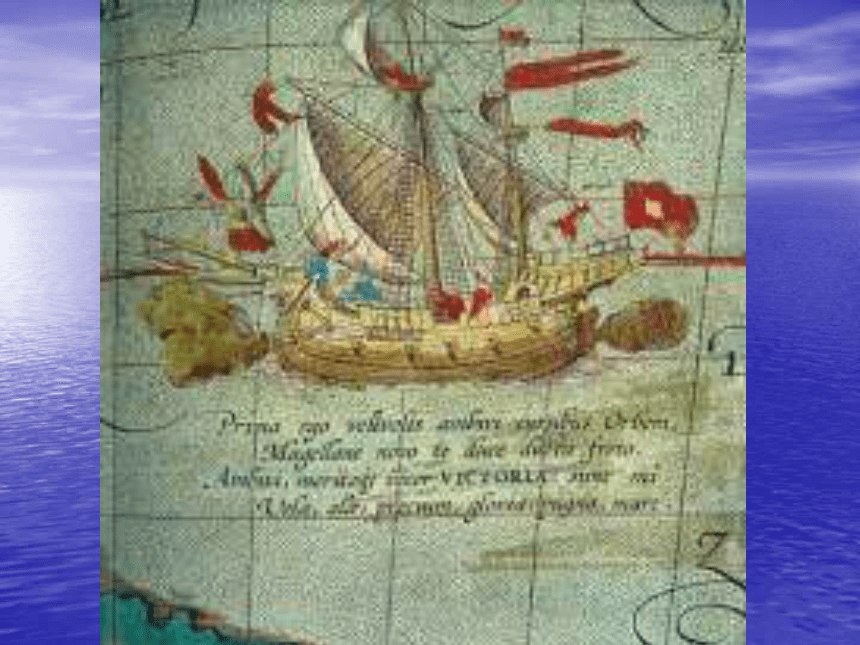 Prima ego velivolis ambivi cursibus Orbem,
Magellane novo te duce ducta freto.
Ambivi, meritoq; vocor VICTORIA: sunt mi
Vela, alæ; precium, gloria: pugna, mare.